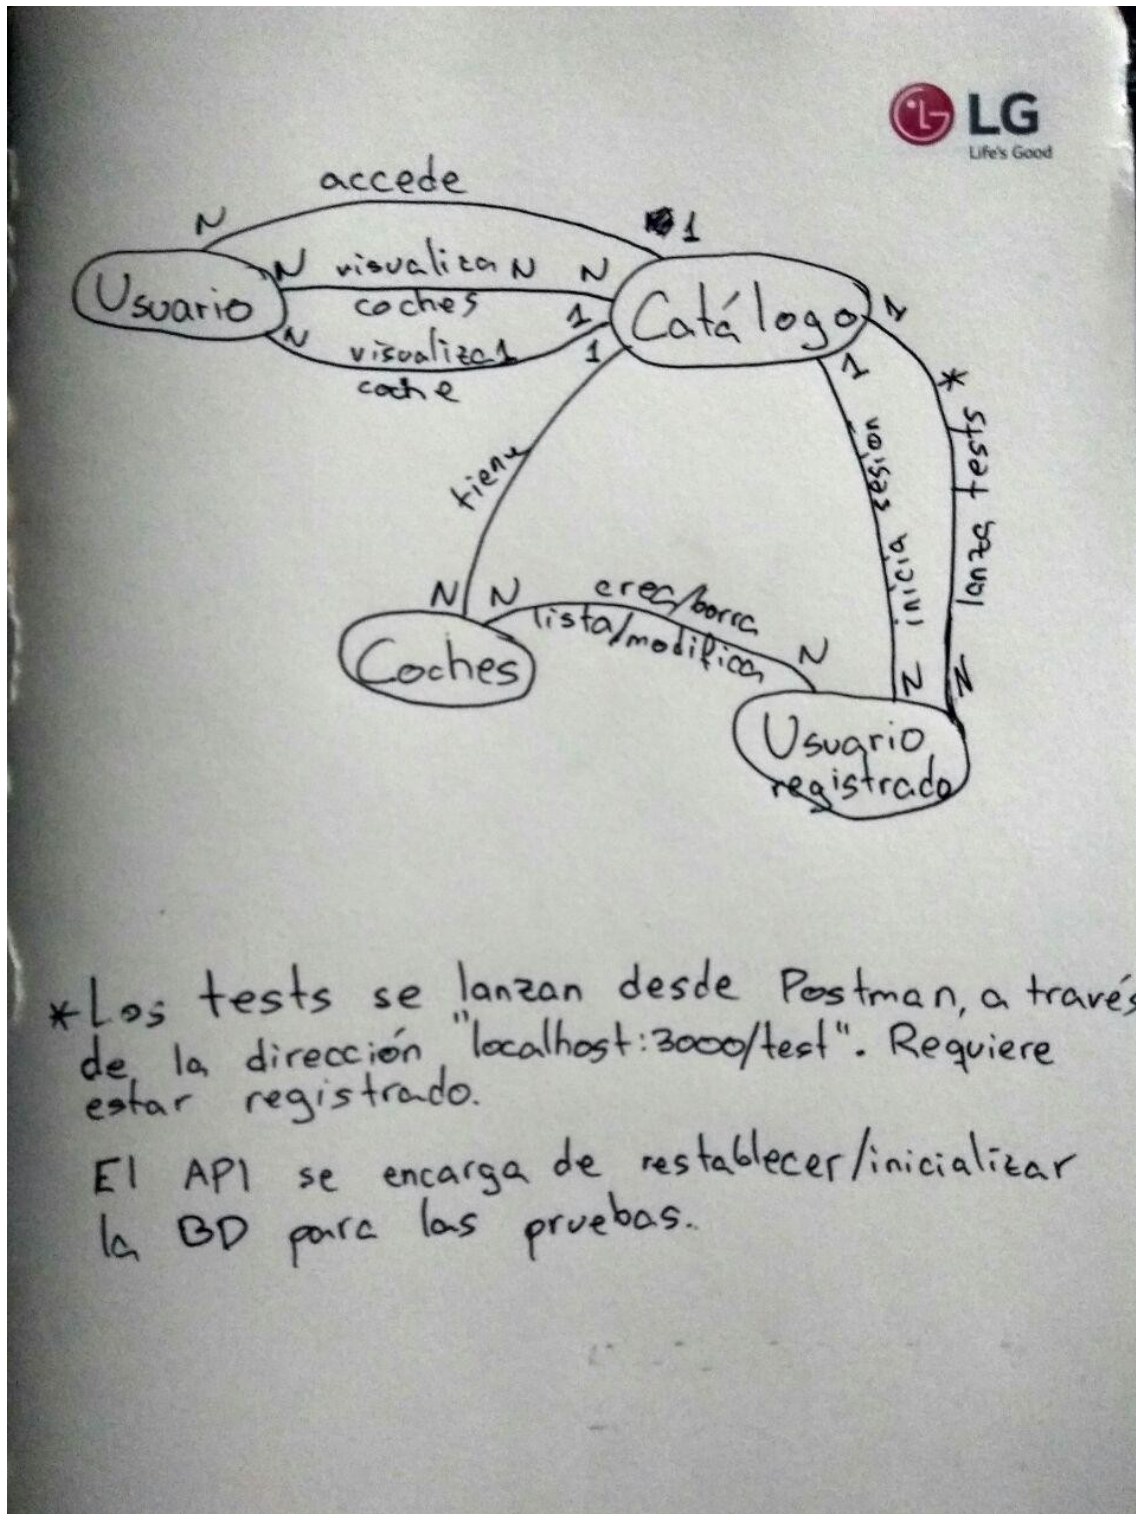 LG
Life's Good
accede
N
1
N visualiza N N
coches
Usuario
Catálogo
1
1
N visualiza 1
coche
1
1
*
tiene
inicia sesión
lanza tests
N
N
crea/borra
lista/modifica
N
N
N
Coches
Usuario
registrado
*Los tests se lanzan desde Postman, a través
de la dirección "localhost:3000/test". Requiere
estar registrado.
El API se encarga de restablecer/inicializar
la BD para las pruebas.